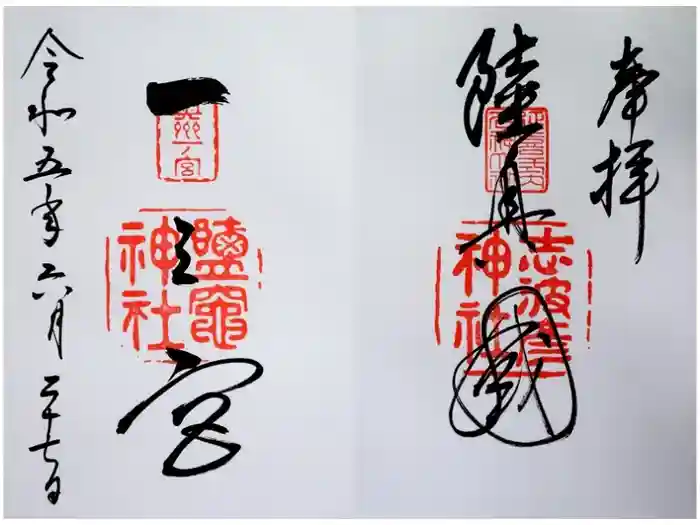 奉拝
陸奥國
志波彦
神社
一之宮
鹽竈
神社
令和五年六月二十七日